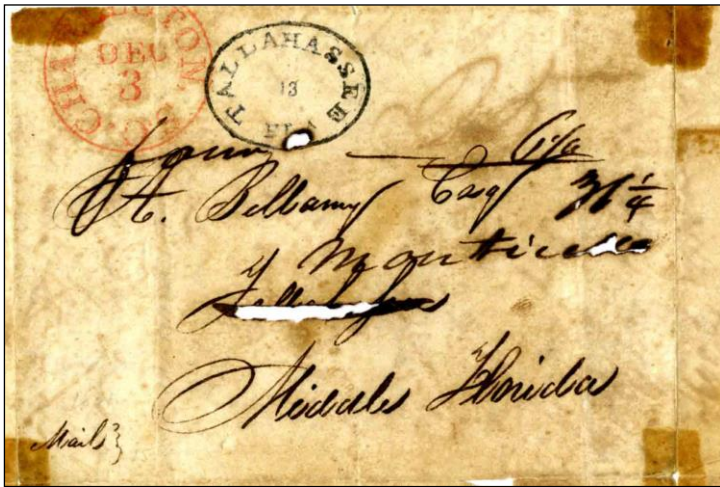 CHARLESTON. S.C.
DEC
3
TALLAHASSEE
13
FL.
6¼
A. Bellamy Esq 31¼
Monticello
Middle Florida
Mail